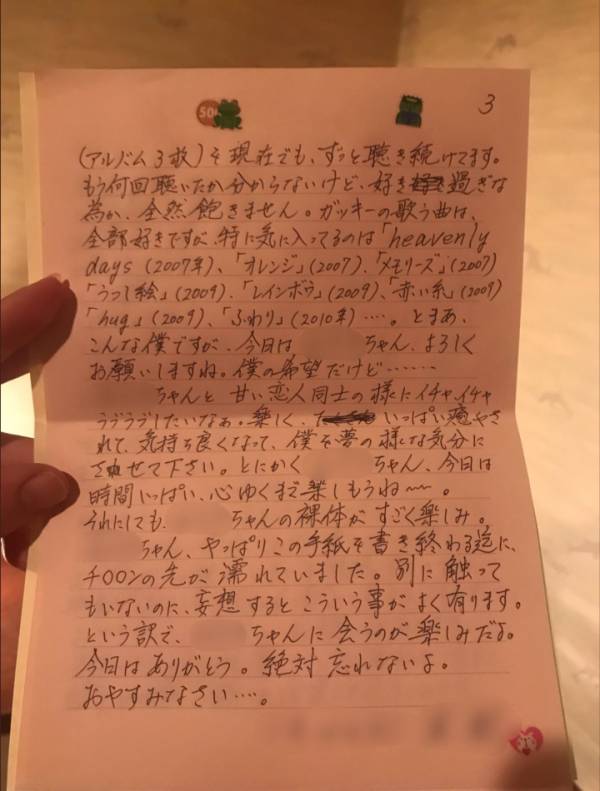 50
3
(アルバム3枚)を現在でも、ずっと聴き続けてます。
もう何回聴いたか分からないけど、好き過ぎな
為か、全然飽きません。ガッキーの歌う曲は、
全部好きですが、特に気に入ってるのは「heavenly
days(2007年)、「オレンジ」(2007)、「メモリーズ」(2007)
「うつし絵」(2009)、「レインボウ」(2009)、「赤い糸」(2009)
「hug」(2009)、「ふわり」(2010年)‥‥。とまあ、
こんな僕ですが、今日は ちゃん、よろしく
お願いしますね。僕の希望だけど‥‥‥‥
ちゃんと 甘い恋人同士の様にイチャイチャ
ラブラブしたいなぁ。楽しく、いっぱい癒やさ
れて、気持ち良くなって、僕を夢の様な気分に
させて下さい。とにかく ちゃん、今日は
時間いっぱい、心ゆくまで楽しもうね〜。
それにしても、 ちゃんの裸体がすごく楽しみ。
ちゃん、やっぱりこの手紙を書き終わる迄に、
チ〇〇ンの先が濡れていました。別に触って
もいないのに、妄想するとこういう事がよく有ります。
という訳で、 ちゃんに会うのが楽しみだよ。
今日はありがとう。絶対忘れないよ。
おやすみなさい‥‥。